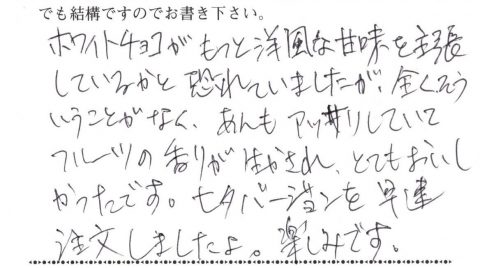 でも結構ですのでお書き下さい。
ホワイトチョコがもっと洋風な甘味を主張
しているかと恐れていましたが、全くそう
いうことがなく、あんもアッサリしていて
フルーツの香りが生かされ、とてもおいし
かったです。七夕バージョンを早速
注文しましたよ。楽しみです。